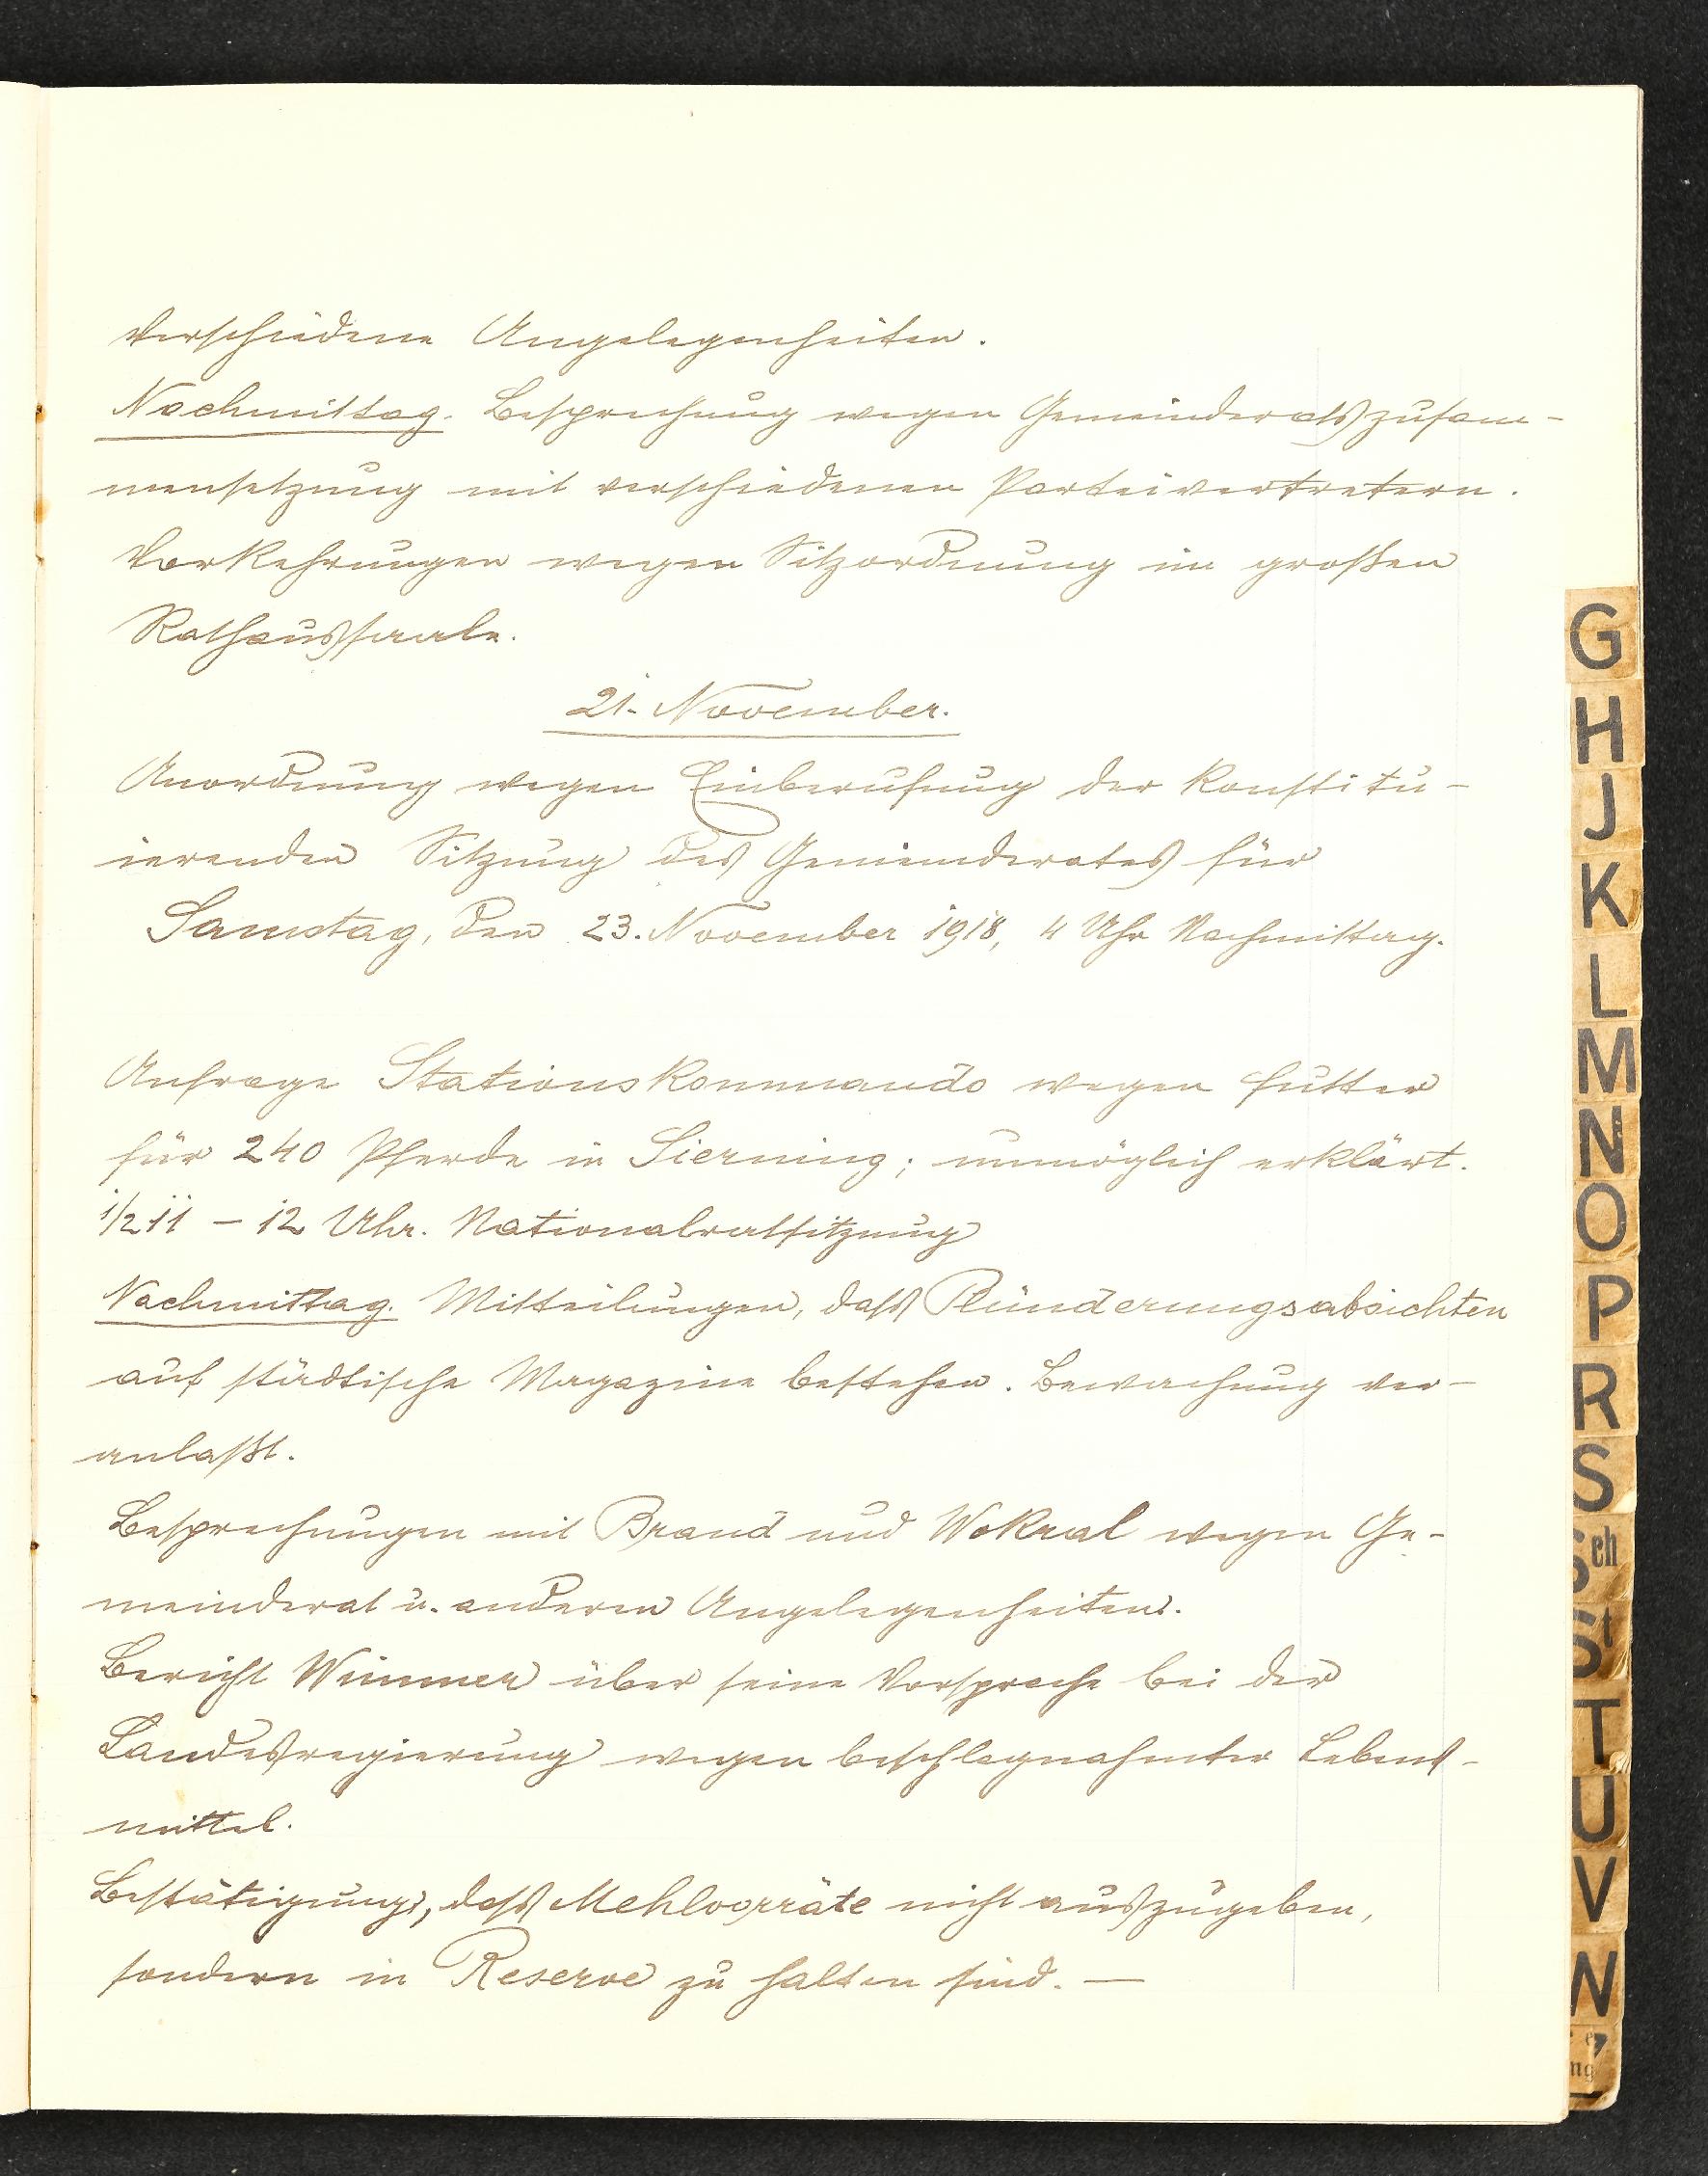 Verschiedene Angelegenheiten.
Nachmittag. Besprechung wegen Gemeinderatszusam-
mensetzung mit verschiedenen Parteivertretern.
Vorkehrungen wegen Sitzordnung im großen
Rathaussaale.
21. November.
Anordnung wegen Einberufung der konstitu-
ierenden Sitzung des Gemeinderates für
Samstag, den 23. November 1918, 4 Uhr Nachmittag.
Anfrage Stationskommando wegen Futter
für 240 Pferde in Sierning; unmöglich erklärt.
1/2 11 - 12 Uhr. Nationalratsitzung
Nachmittag. Mitteilungen, dass Plünderungsabsichten
auf städtische Magazine bestehen. Bewachung ver-
anlaßt.
Besprechungen mit Brand und Wokral wegen Ge-
meinderat u. anderen Angelegenheiten.
Bericht Wimmer über seine Vorsprache bei der
Landesregierung wegen beschlagnahmter Lebens-
mittel.
Bestätigung, dass Mehlvorräte nicht auszugeben,
sondern in Reserve zu halten sind. —
G
H
J
K
L
M
N
O
P
R
S
Sch
St
T
U
V